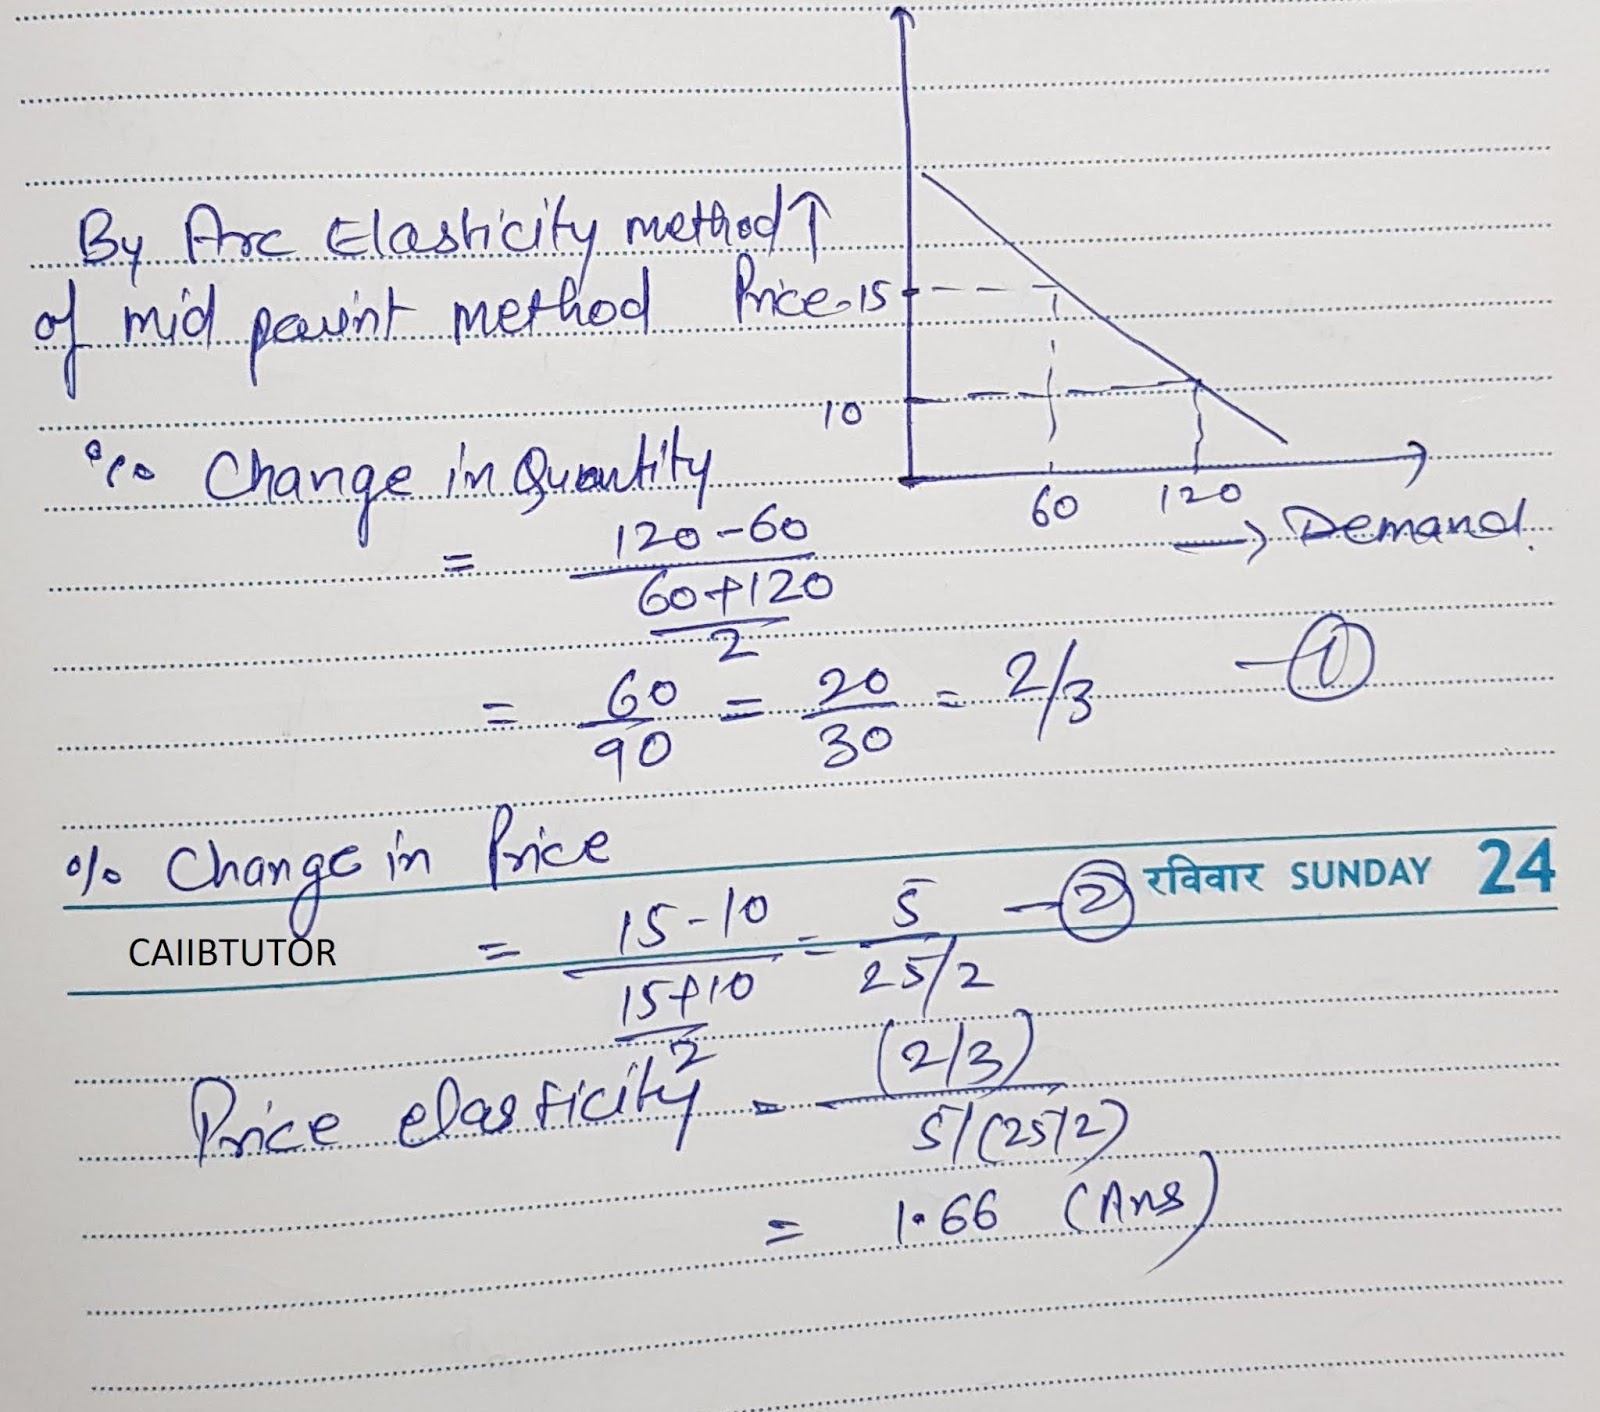 By Arc Elasticity method ↑
of mid point method Price 15
10
% Change in Quantity
60 120
→ Demand
= 120-60
60+120
2
= 60/90 = 20/30 = 2/3 —①
% Change in Price
रविवार SUNDAY 24
CAIIBTUTOR
= 15-10 = 5 —②
15+10 25/2
2
Price elasticity = (2/3)
5/(25/2)
= 1.66 (Ans)